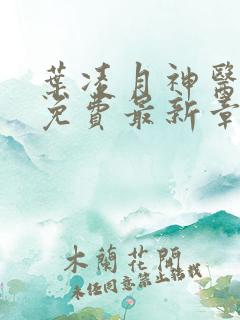 葉凌月神醫
免費最新章
木蘭花開
未经同意禁止转载